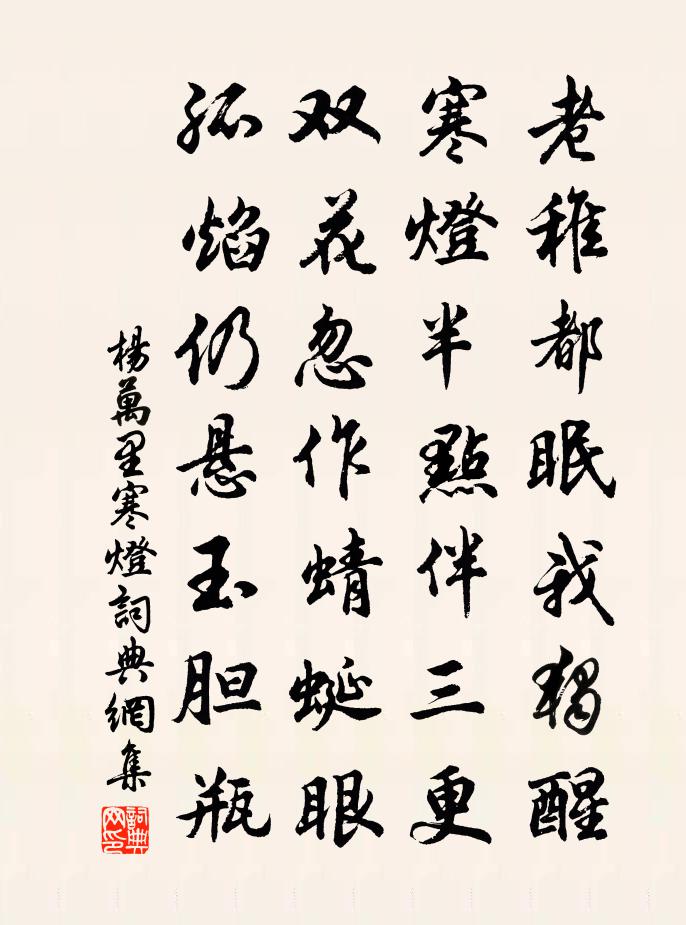 老稚都眠我獨醒
寒燈半點伴三更
双花忽作蜻蜒眼
孤焰仍悬玉胆瓶
楊萬里寒燈詞典網集
詞典網印